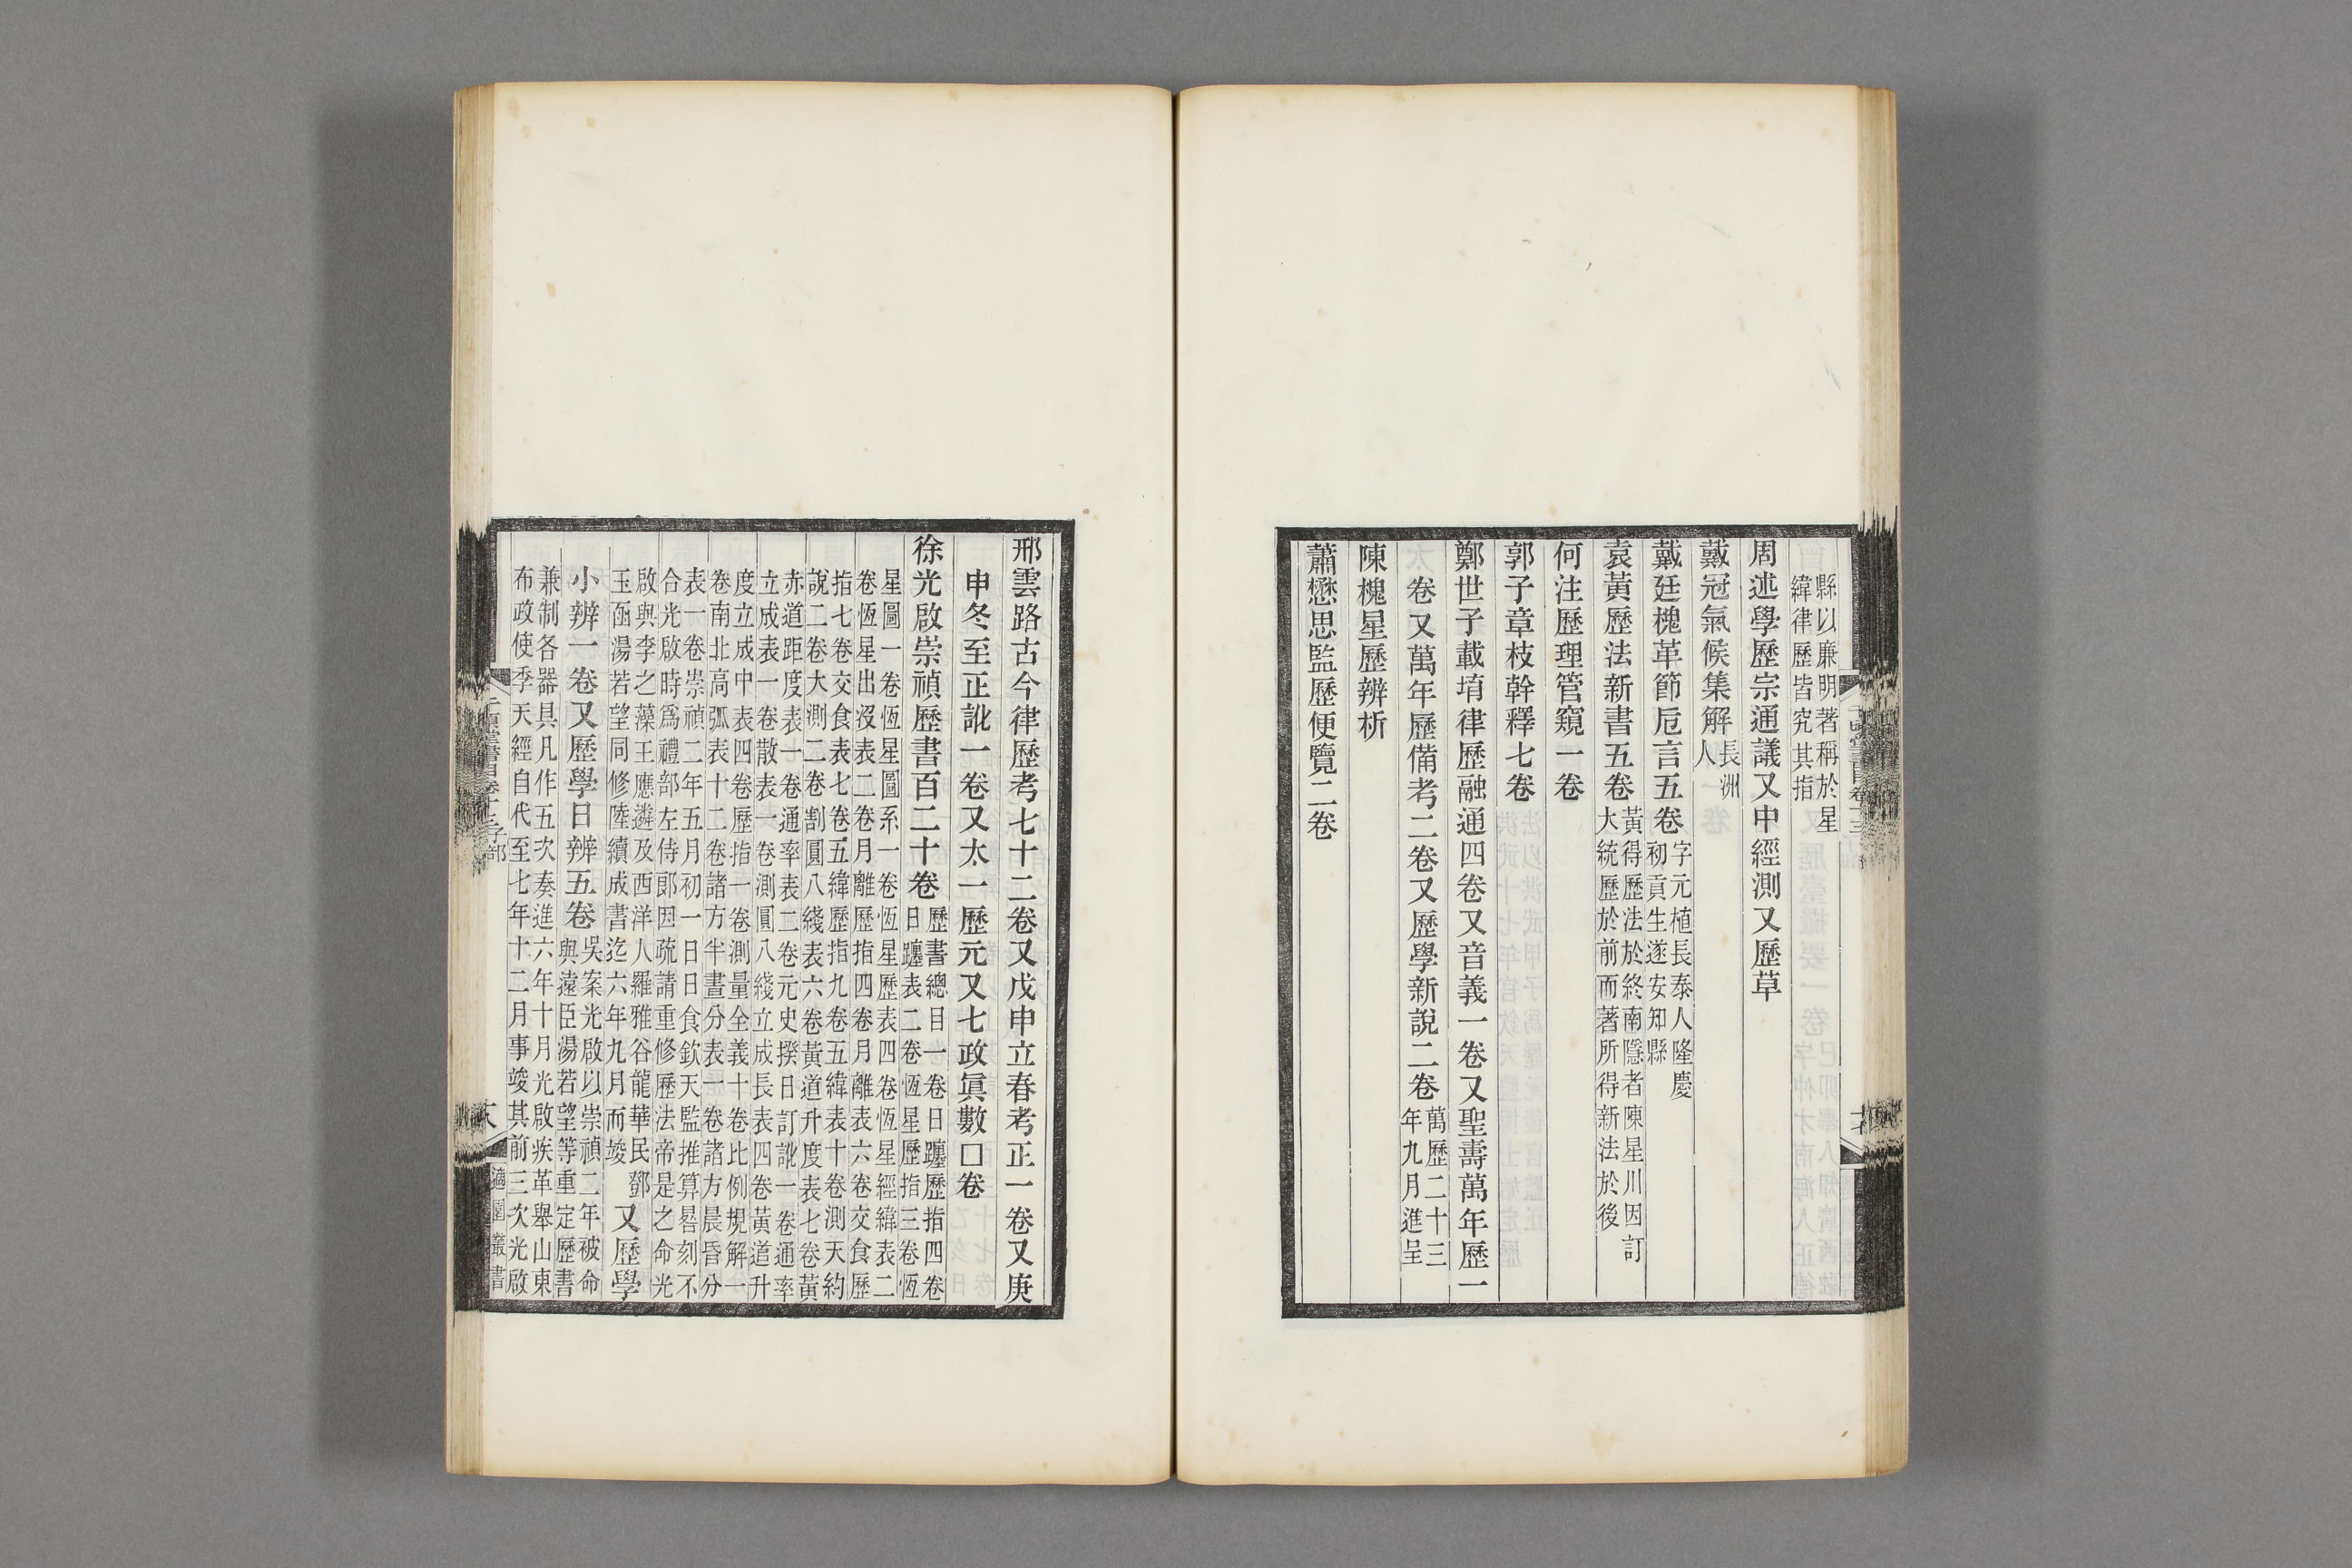 縣以廉明著稱於星
緯律歷皆究其指
周述學歷宗通議又中經測又歷草
戴冠氣候集解長洲
人
戴廷槐革節卮言五卷字元植長泰人隆慶
初貢生遂安知縣
袁黃歷法新書五卷黃得歷法於終南隱者陳星川因訂
大統歷於前而著所得新法於後
何注歷理管窺一卷
郭子章枝幹釋七卷
鄭世子載堉律歷融通四卷又音義一卷又聖壽萬年歷一
卷又萬年歷備考二卷又歷學新說二卷萬歷二十三
年九月進呈
陳槐星歷辨析
蕭懋思監歷便覽二卷
邢雲路古今律歷考七十二卷又戊申立春考正一卷又庚
申冬至正訛一卷又太一歷元又七政眞數囗卷
徐光啟崇禎歷書百二十卷歷書總目一卷日躔歷指四卷
日躔表二卷恆星歷指三卷恆
星圖一卷恆星圖系一卷恆星歷表四卷恆星經緯表二
卷恆星出沒表二卷月離歷指四卷月離表六卷交食歷
指七卷交食表七卷五緯歷指九卷五緯表十卷測天約
說二卷大測二卷割圓八綫表六卷黃道升度表七卷黃
赤道距度表一卷通率表二卷元史揆日訂訛一卷通率
立成表一卷散表一卷測圓八綫立成長表四卷黃道升
度立成中表四卷歷指一卷測量全義十卷比例規解一
卷南北高弧表十二卷諸方半晝分表一卷諸方晨昏分
表一卷崇禎二年五月初一日日食欽天監推算晷刻不
合光啟時爲禮部左侍郎因疏請重修歷法帝是之命光
啟與李之藻王應遴及西洋人羅雅谷龍華民鄧
玉函湯若望同修陸續成書迄六年九月而竣
又歷學
小辨一卷又歷學日辨五卷吳案光啟以崇禎二年被命
與遠臣湯若望等重定歷書
兼制各器具凡作五次奏進六年十月光啟疾革舉山東
布政使季天經自代至七年十二月事竣其前三次光啟
適園叢書